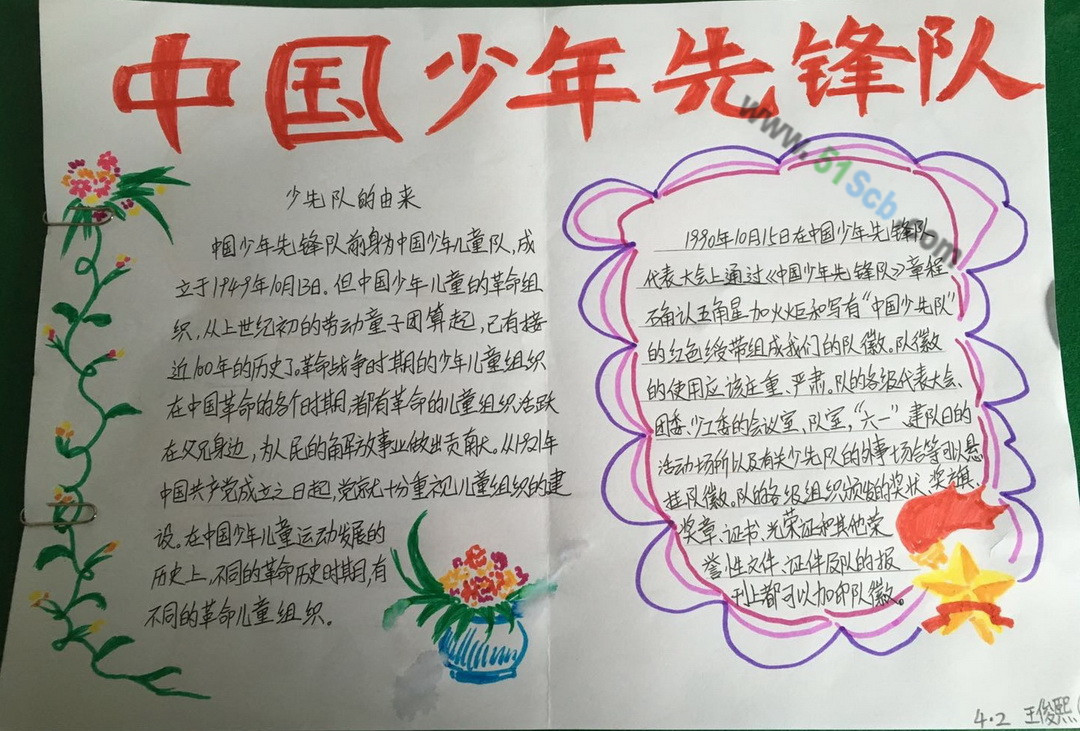 中国少年先锋队
少先队的由来
中国少年先锋队前身为中国少年儿童队,成
立于1949年10月13日。但中国少年儿童的革命组
织,从上世纪初的劳动童子团算起,已有接
近100年的历史了。革命战争时期的少年儿童组织
在中国革命的各个时期,都有革命的儿童组织活跃
在父兄身边,为人民的解放事业做出贡献。从1921年
中国共产党成立之日起,党就十分重视儿童组织的建
设。在中国少年儿童运动发展的
历史上,不同的革命历史时期,有
不同的革命儿童组织。
1990年10月15日在中国少年先锋队
代表大会上通过《中国少年先锋队》章程
确认五角星加火炬和写有“中国少先队”
的红色绶带组成我们的队徽。队徽
的使用应该庄重、严肃。队的各级代表大会、
团委、少工委的会议室、队室,“六一”、建队日的
活动场所以及有关少先队的外事场合等可以悬
挂队徽。队的各级组织颁发的奖状、奖旗、
奖章、证书、光荣证和其他荣
誉性文件、证件及队的报
刊上都可以加印队徽。
www.51Scb.com
4.2 王俊熙